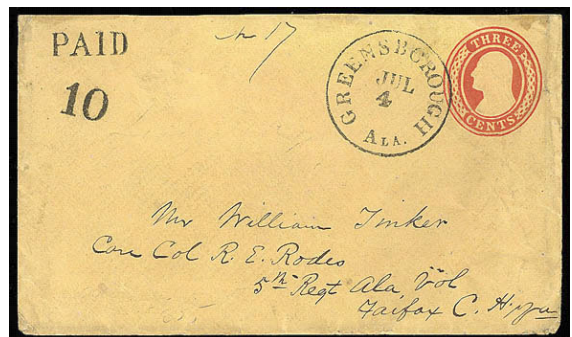 PAID
10
17
GREENSBOROUGH
JUL
4
ALA.
THREE
CENTS
Mr William Tinker
Care Col R. E. Rodes
5th Regt Ala, Vol
Fairfax C. H